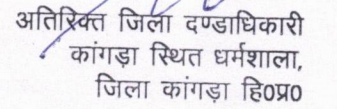 अतिरिक्त जिला दण्डाधिकारी
कांगड़ा स्थित धर्मशाला,
जिला कांगड़ा हि0प्र0